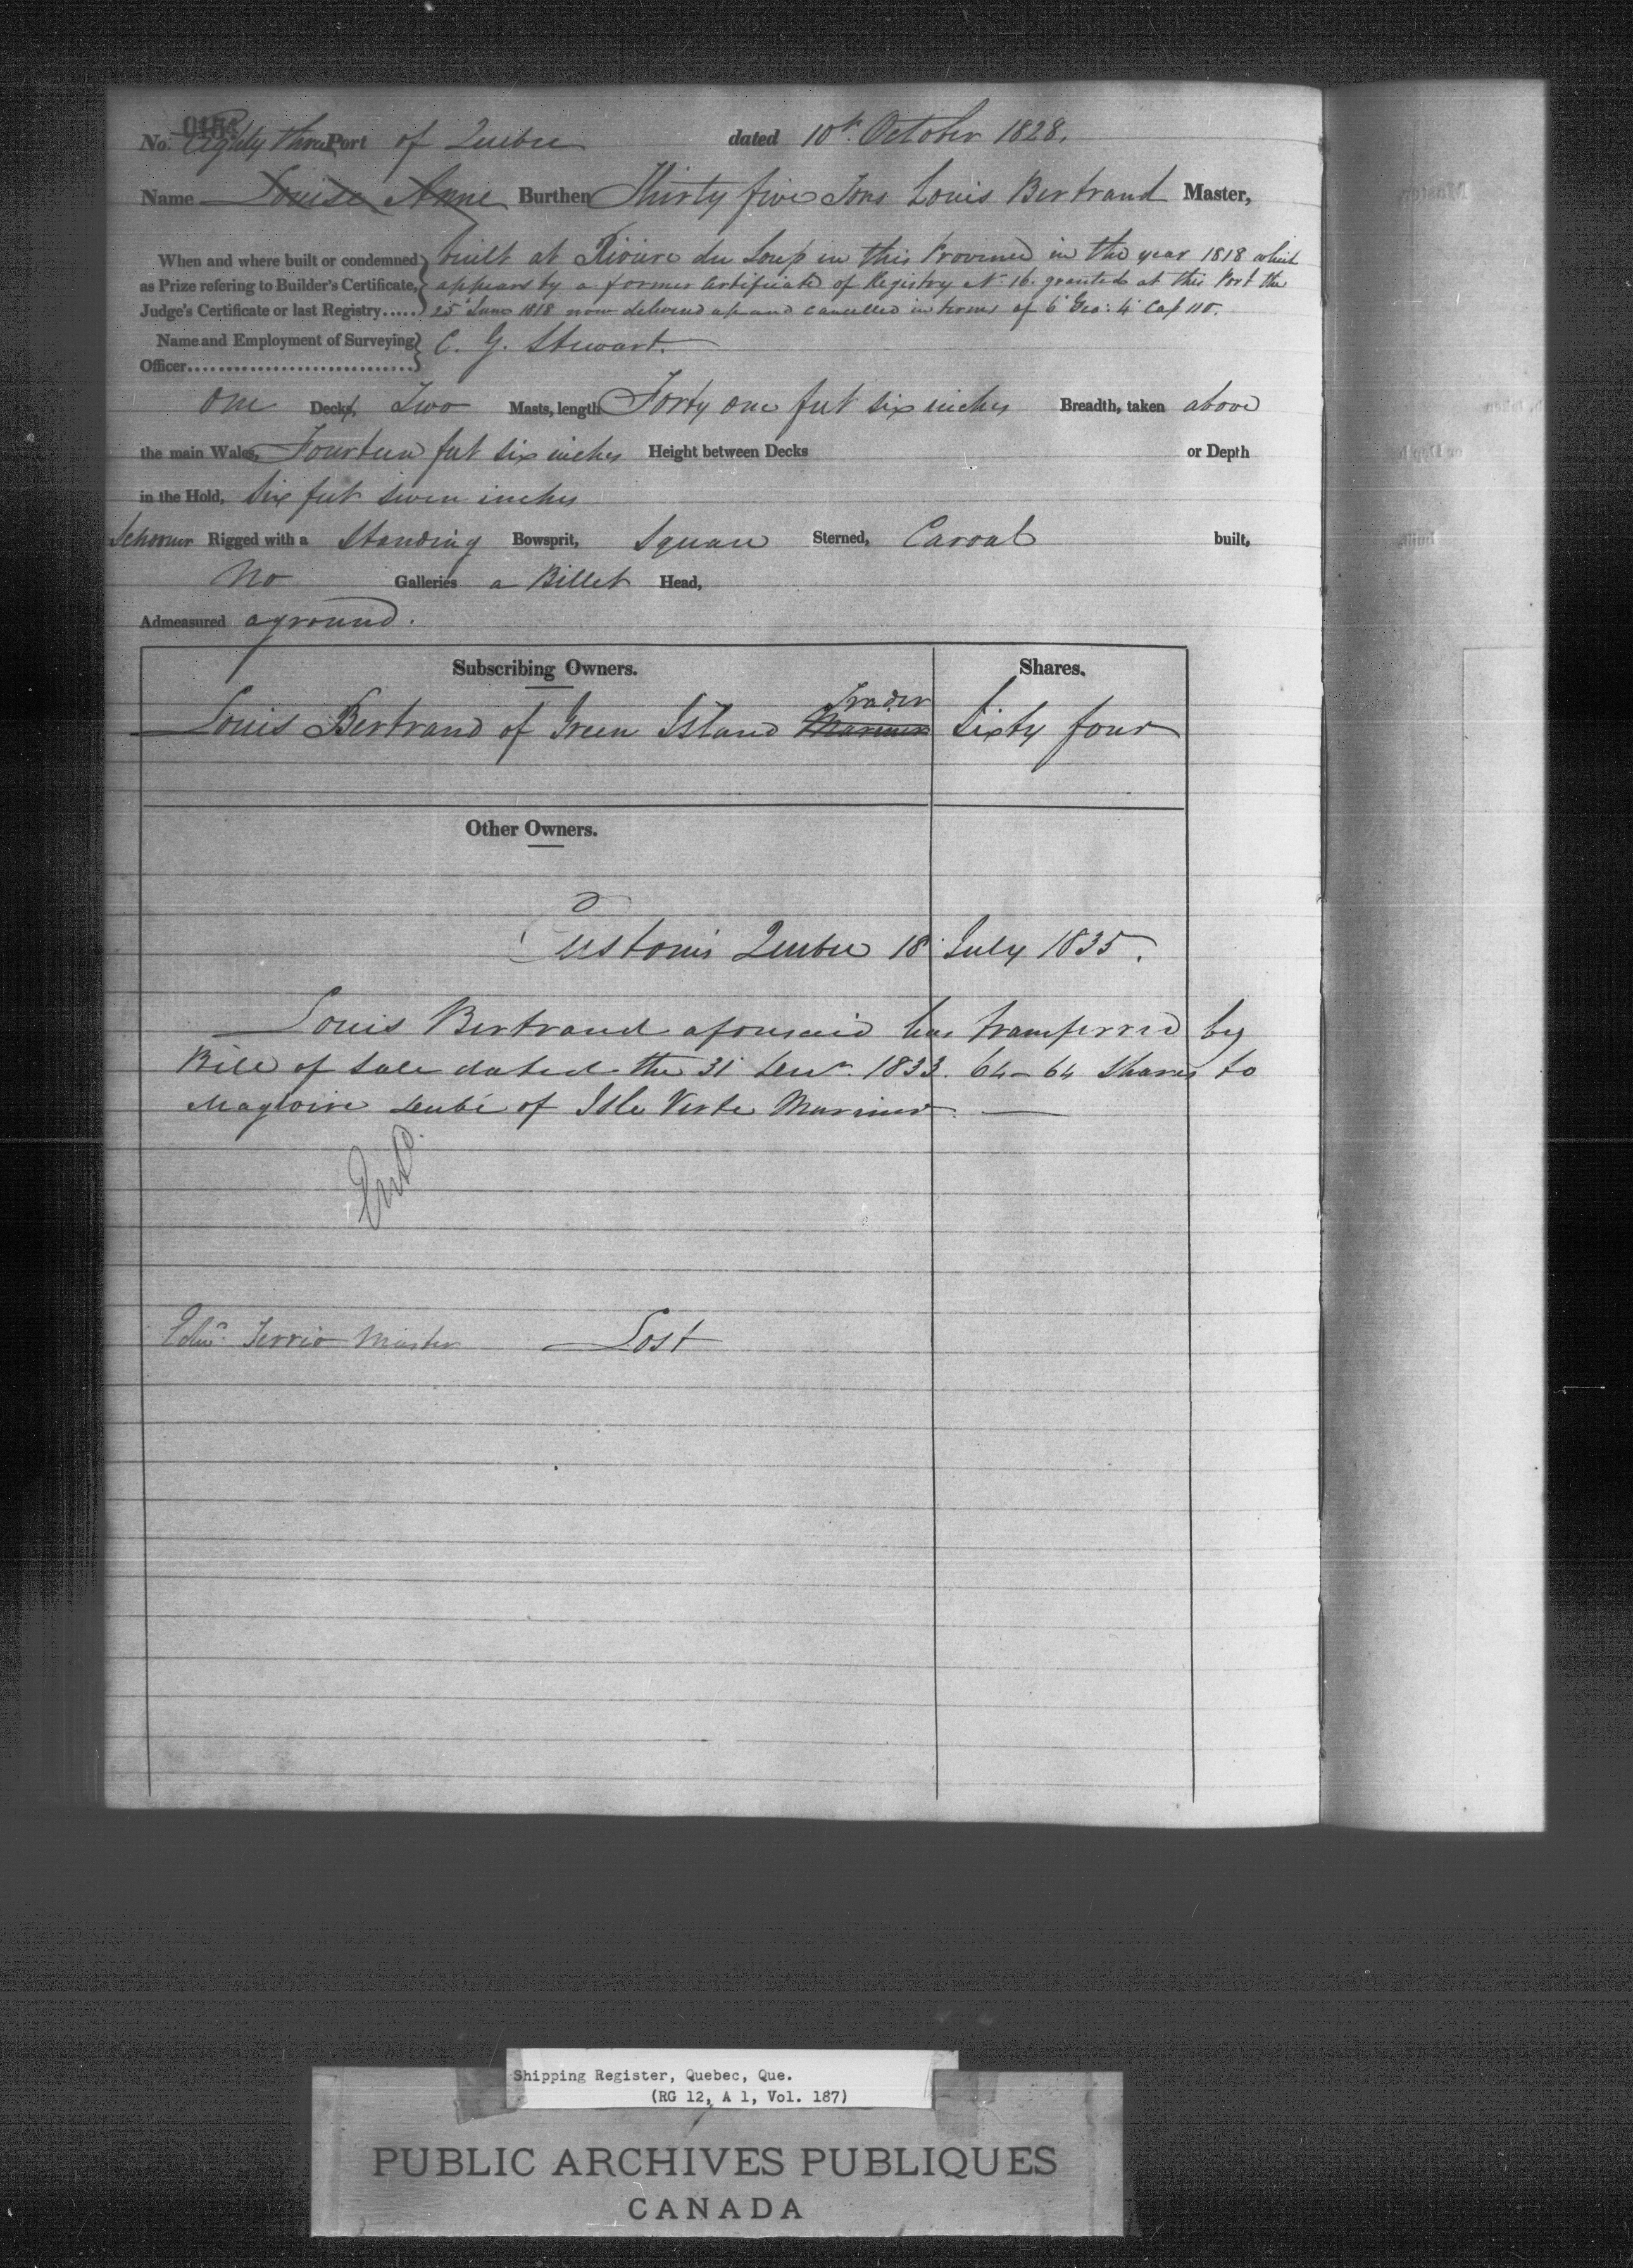 No. Eighty three Port of Quebec dated 10th October 1828.
Name Louise Anne Burthen Thirty five Tons Louis Bertrand Master,
When and where built or condemned as Prize refering to Builder's Certificate, Judge's Certificate or last Registry.....
built at Riviere du Loup in this Province in the year 1818 which
appears by a former Certificate of Registry No 16. granted at this Port the
25 June 1818 now delivered up and cancelled in terms of 6 Geo: 4 Cap 110.
Name and Employment of Surveying Officer.............................. C. G. Stewart.
One Decks, Two Masts, length Forty one feet six inches Breadth, taken above
the main Wales, Fourteen feet six inches Height between Decks or Depth
in the Hold, Six feet seven inches
Schooner Rigged with a Standing Bowsprit, Square Sterned, Carval built,
No Galleries a Billet Head,
Admeasured aground.
Subscribing Owners. Shares.
Trader
Louis Bertrand of Green Island Mariner Sixty four
Other Owners.
Customs Quebec 18 July 1835.
Louis Bertrand aforesaid has transferred by
Bill of Sale dated the 31 Decr. 1833. 64-64 Shares to
Magloire Dubé of Isle Verte Mariner.
Edwd. Terrio Master Lost
Shipping Register, Quebec, Que.
(RG 12, A 1, Vol. 187)
PUBLIC ARCHIVES PUBLIQUES
CANADA